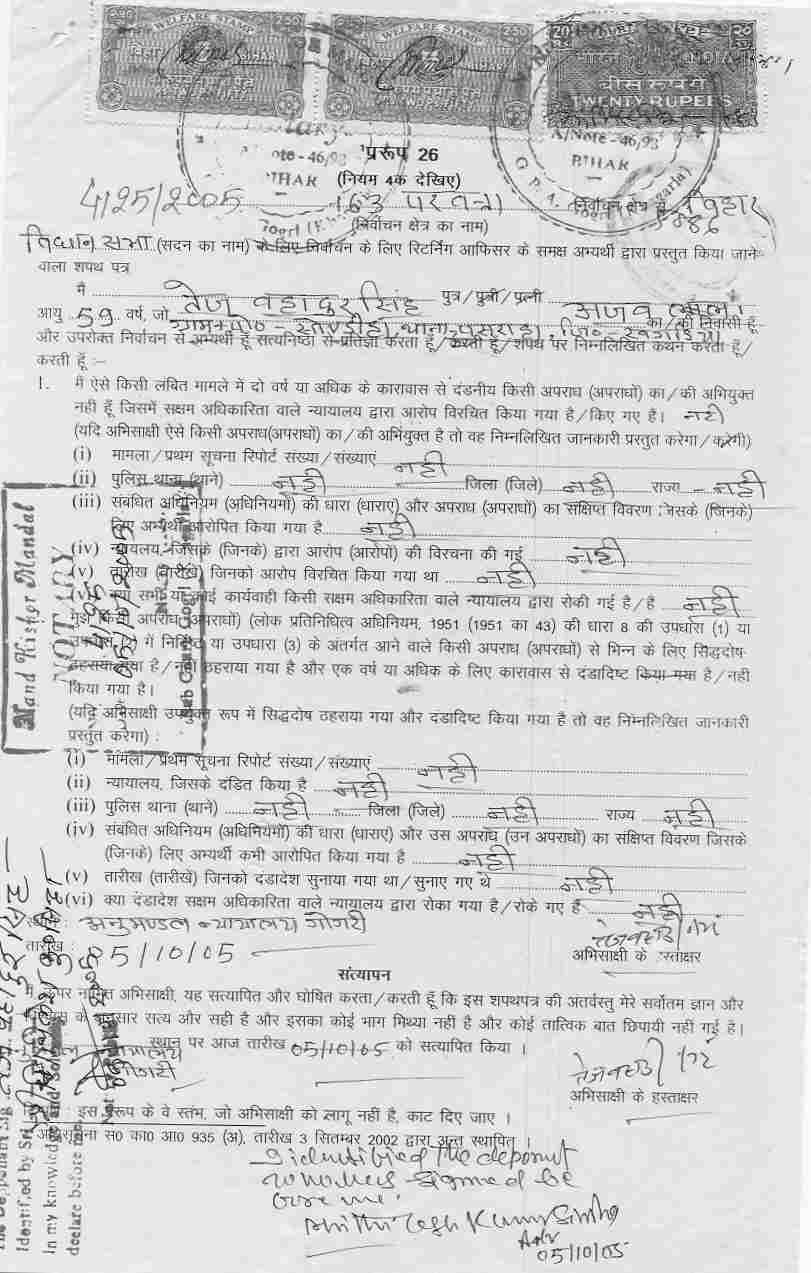 250 WELFARE STAMP 250
BIHAR
250 WELFARE STAMP 250
BIHAR
20 20
भारत INDIA
बीस रूपये
TWENTY RUPEES
A/Note-46/93
BIHAR
ote-46/93
BIHAR
प्ररूप 26
(नियम 4क देखिए)
4125/2005
163 परवत्ता निर्वाचन क्षेत्र से बिहार
(निर्वाचन क्षेत्र का नाम)
विधान सभा (सदन का नाम) के लिए निर्वाचन के लिए रिटर्निंग आफिसर के समक्ष अभ्यर्थी द्वारा प्रस्तुत किया जाने
वाला शपथ पत्र
मैं तेज बहादुर सिंह पुत्र/पुत्री/पत्नी
आयु 59 वर्ष, जो का/की निवासी हूँ
और उपरोक्त निर्वाचन से अभ्यर्थी हूँ सत्यनिष्ठा से प्रतिज्ञा करता हूँ/करती हूँ/शपथ पर निम्नलिखित कथन करता हूँ/
करती हूँ :–
1. मैं ऐसे किसी लंबित मामले में दो वर्ष या अधिक के कारावास से दंडनीय किसी अपराध (अपराधों) का/की अभियुक्त
नहीं हूँ जिसमें सक्षम अधिकारिता वाले न्यायालय द्वारा आरोप विरचित किया गया है/किए गए है। नही
(यदि अभिसाक्षी ऐसे किसी अपराध(अपराधों) का/की अभियुक्त है तो वह निम्नलिखित जानकारी प्रस्तुत करेगा/करेगी)
(i) मामला/प्रथम सूचना रिपोर्ट संख्या/संख्याएं नही
(ii) पुलिस थाना (थाने) नही जिला (जिले) नही राज्य नही
(iii) संबधित अधिनियम (अधिनियमों) की धारा (धाराए) और अपराध (अपराधों) का संक्षिप्त विवरण जिसके (जिनके)
लिए अभ्यर्थी आरोपित किया गया है नही
(iv) न्यायलय, जिसके (जिनके) द्वारा आरोप (आरोपों) की विरचना की गई नही
(v) तारीख (तारीखे) जिनको आरोप विरचित किया गया था नही
(vi) क्या सभी या कोई कार्यवाही किसी सक्षम अधिकारिता वाले न्यायालय द्वारा रोकी गई है/है नही
मुझे किसी अपराध (अपराधों) (लोक प्रतिनिधित्व अधिनियम, 1951 (1951 का 43) की धारा 8 की उपधारा (1) या
में निर्दिष्ट या उपधारा (3) के अंतर्गत आने वाले किसी अपराध (अपराधों) से भिन्न के लिए सिद्धदोष
ठहराया गया है/नही ठहराया गया है और एक वर्ष या अधिक के लिए कारावास से दंडादिष्ट किया गया है/नही
किया गया है।
(यदि अभिसाक्षी उपर्युक्त रूप में सिद्धदोष ठहराया गया और दंडादिष्ट किया गया है तो वह निम्नलिखित जानकारी
प्रस्तुत करेगा) :
(i) मामला/प्रथम सूचना रिपोर्ट संख्या/संख्याएं नही
(ii) न्यायालय, जिसके दंडित किया है नही
(iii) पुलिस थाना (थाने) नही जिला (जिले) नही राज्य नही
(iv) संबधित अधिनियम (अधिनियमों) की धारा (धाराए) और उस अपराध (उन अपराधों) का संक्षिप्त विवरण जिसके
(जिनके) लिए अभ्यर्थी कभी आरोपित किया गया है नही
(v) तारीख (तारीखे) जिनको दंडादेश सुनाया गया था/सुनाए गए थे नही
(vi) क्या दंडादेश सक्षम अधिकारिता वाले न्यायालय द्वारा रोका गया है/रोके गए है नही
अनुमण्डल न्यायालय गोगरी
तारीख : 05/10/05
अभिसाक्षी के हस्ताक्षर
सत्यापन
मैं ऊपर नामित अभिसाक्षी, यह सत्यापित और घोषित करता/करती हूँ कि इस शपथपत्र की अंतर्वस्तु मेरे सर्वोतम ज्ञान और
के अनुसार सत्य और सही है और इसका कोई भाग मिथ्या नहीं है और कोई तात्विक बात छिपायी नहीं गई है।
स्थान पर आज तारीख 05/10/05 को सत्यापित किया ।
गोगरी
अभिसाक्षी के हस्ताक्षर
इस प्ररूप के वे स्तंभ, जो अभिसाक्षी को लागू नहीं है, काट दिए जाए ।
स0 का0 आ0 935 (अ), तारीख 3 सितम्बर 2002 द्वारा अन्त स्थापित ।
I identified the deponent
who has signed be
fore me.
Mithilesh Kumar Sinha
Adv
05/10/05
Nand Kishor Mandal
NOTARY
Identified by Sri
In my knowledge and
declare before me